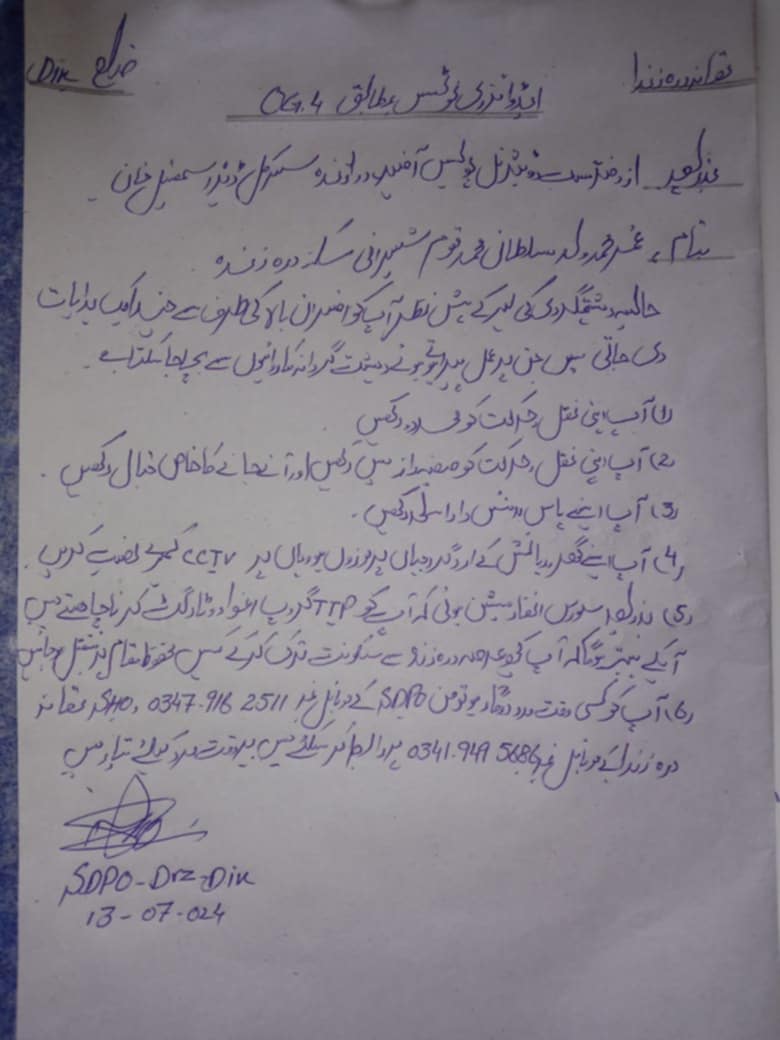 تھانہ درہ زندا ضلع DIK
ایڈوائزری نوٹس بمطابق OG.4
منجانب از دفتر سب ڈویژنل پولیس آفیسر درازندہ سرکل ڈیرہ اسمعیل خان
بنام، عمر محمد ولد سلطان محمد قوم شیرانی سکنہ درہ زندہ
حالیہ دہشتگردی کی لہر کے پیش نظر آپ کو افسران بالا کی طرف سے چند ایک ہدایات
دی جاتی ہیں جن پر عمل پیرا ہوتے ہوئے دہشت گردانہ کاروائیوں سے بچا جا سکتا ہے۔
(1) آپ اپنی نقل و حرکت کو محدود رکھیں
(2) آپ اپنی نقل و حرکت کو صیغہ راز میں رکھیں اور آنے جانے کا خاص خیال رکھیں۔
(3) آپ اپنے پاس لائسنس دار اسلحہ رکھیں۔
(4) آپ اپنے گھر و رہائش کے اردگرد جہاں پر موزوں ہو وہاں پر CCTV کیمرے نصب کریں۔
(5) بذریعہ سورس انفارمیشن ہوئی کہ آپ کو TTP گروپ اغواء و ٹارگٹ کرنا چاہتے ہیں
آپکے لیے بہتر ہوگا کہ آپ کچھ عرصہ درہ زندہ سے سکونت ترک کرکے کسی محفوظ مقام پر منتقل ہو جائیں
(6) آپ کو کسی وقت مدد درکار ہو تو من SDPO کے موبائل نمبر 0347.916 2511 و SHO تھانہ
درہ زندا کے موبائل نمبر 0341.949 5686 پر رابطہ کر سکتے ہیں ہر وقت مدد کیلئے تیار ہیں
SDPO-Drz-Dik
13-07-024